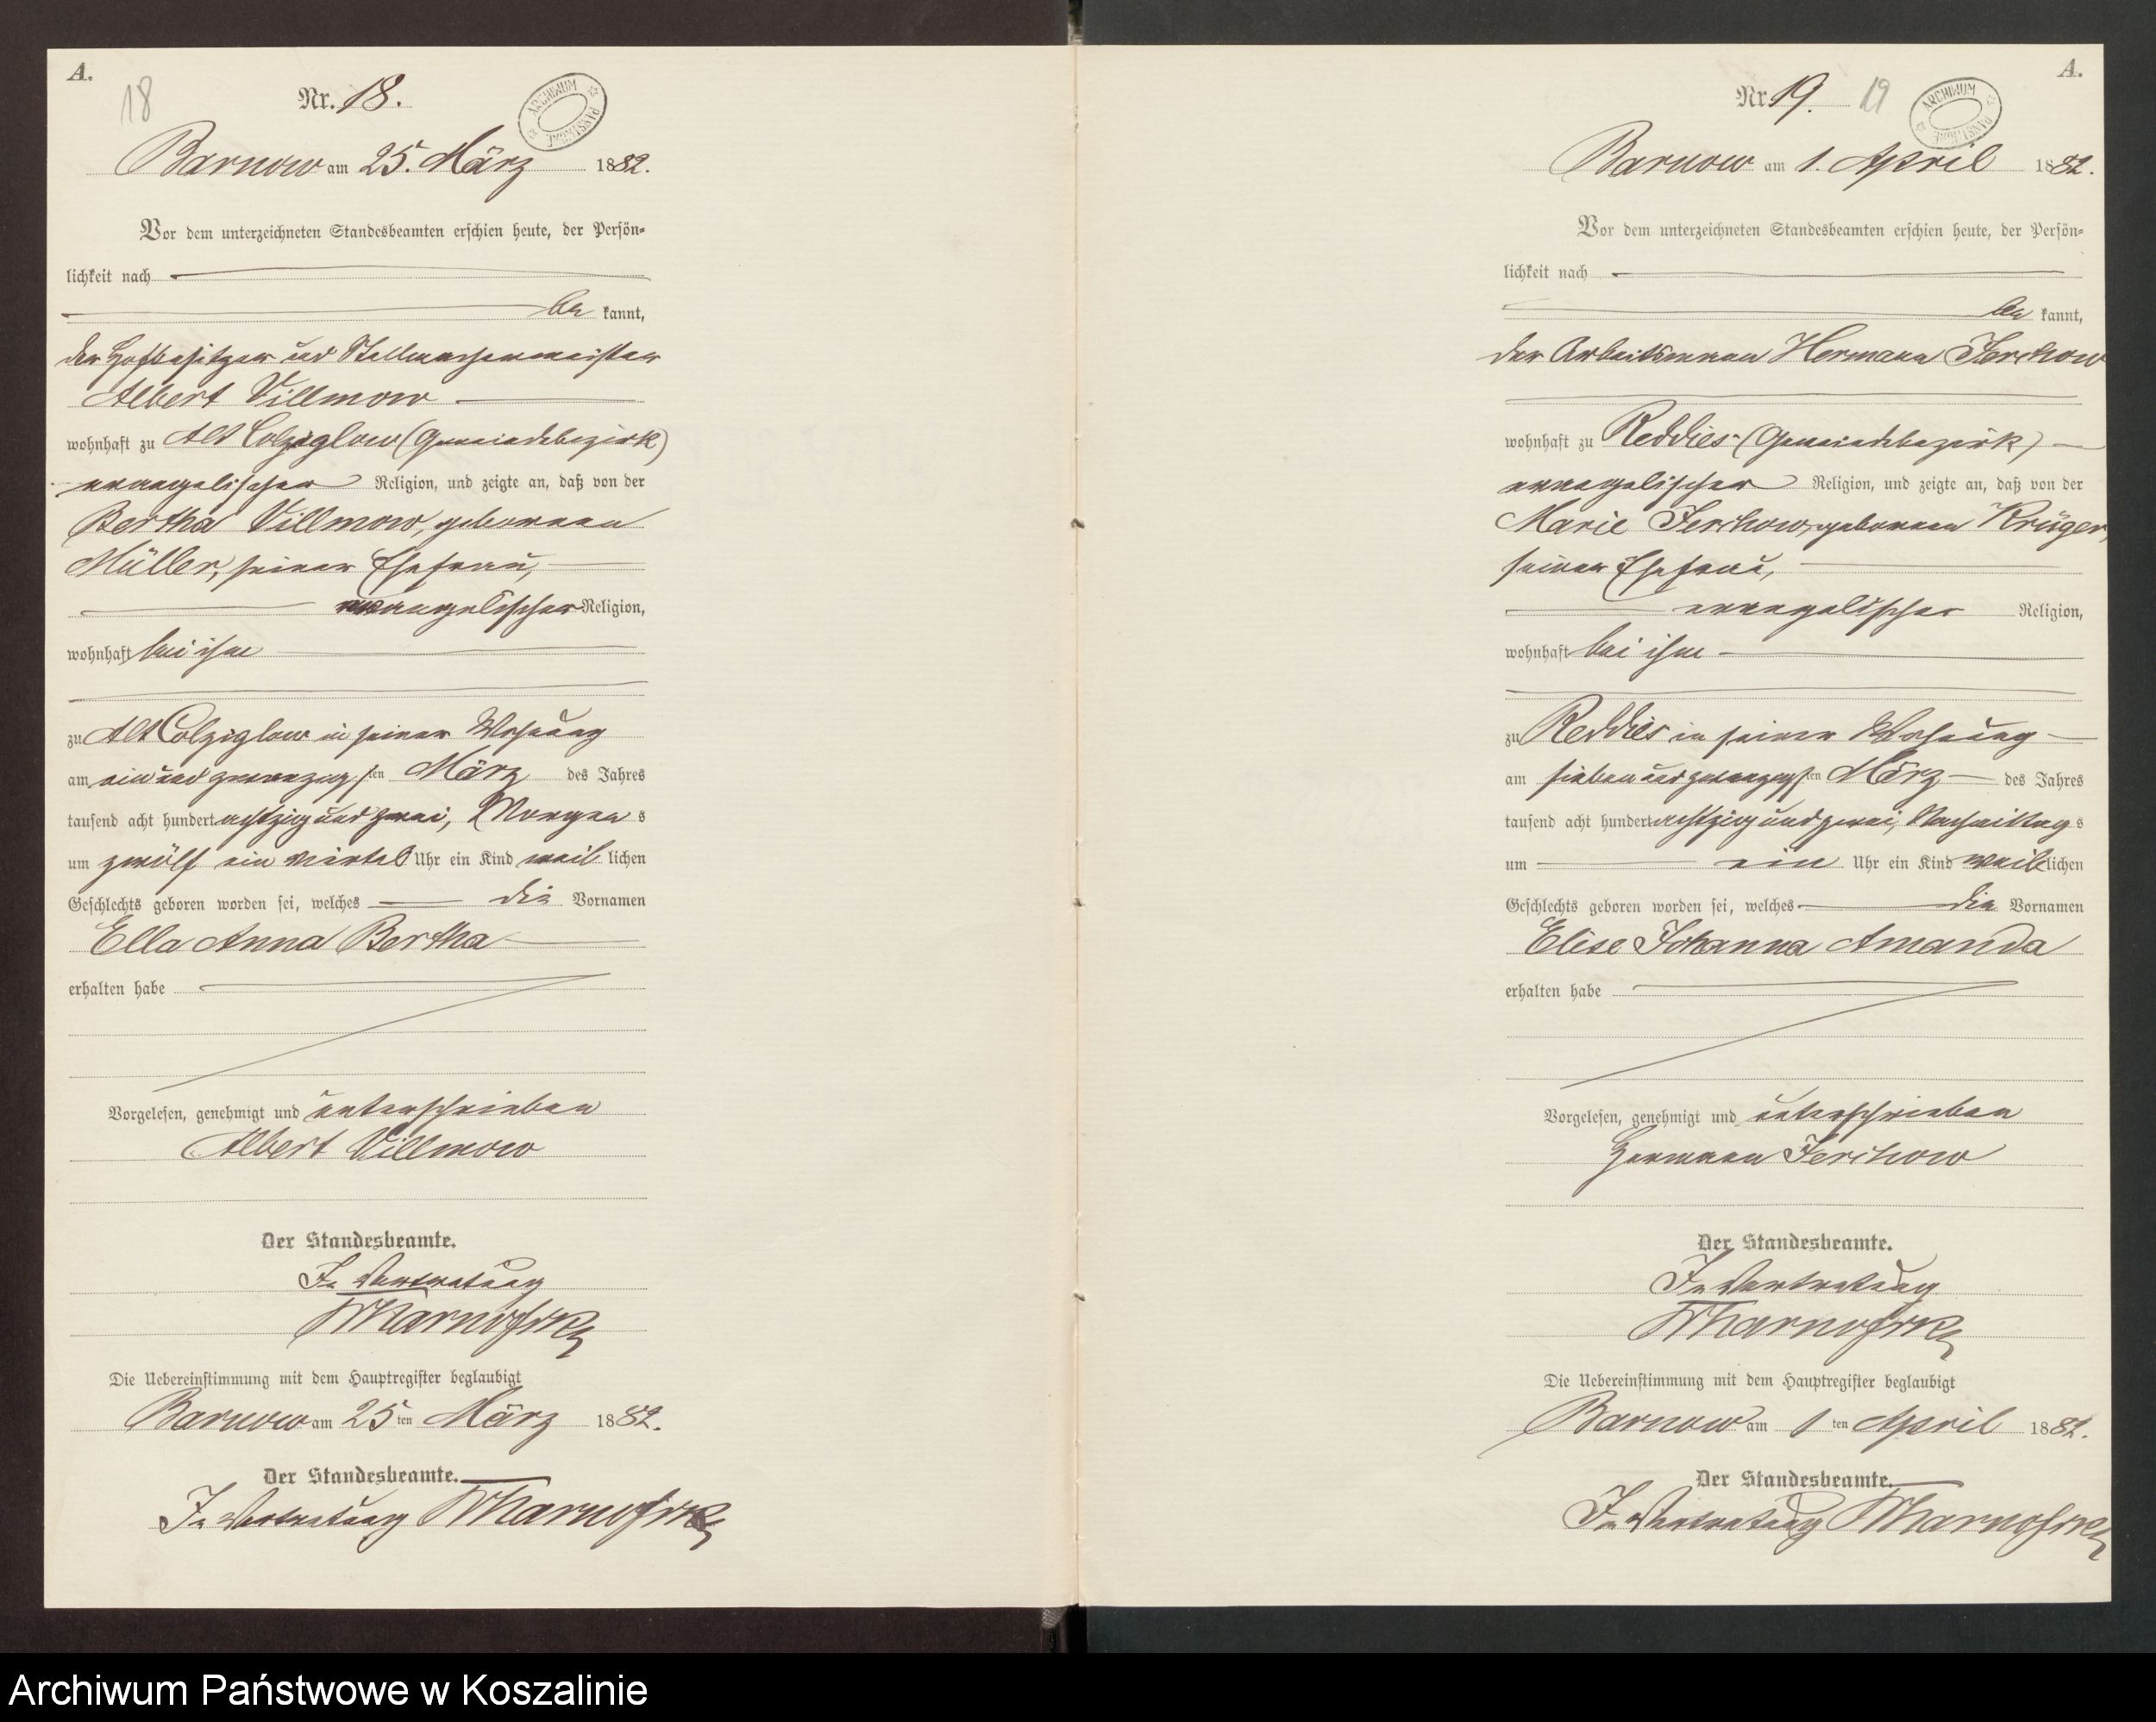 A.
18
Nr. 18.
ARCHIWUM PAŃSTWOWE
Barnow am 25. März 1882.
Vor dem unterzeichneten Standesbeamten erschien heute, der Persön-
lichkeit nach
be kannt,
der Hofbesitzer und Stellmachermeister
Albert Villmow
wohnhaft zu Alt Colziglow (Gemeindebezirk)
evangelischer Religion, und zeigte an, daß von der
Bertha Villmow, geborenen
Müller, seiner Ehefrau,
evangelischer Religion,
wohnhaft bei ihm
zu Alt Colziglow in seiner Wohnung
am ein und zwanzigsten März des Jahres
tausend acht hundert achtzig und zwei, Morgens
um zwölf ein viertel Uhr ein Kind weiblichen
Geschlechts geboren worden sei, welches die Vornamen
Ella Anna Bertha
erhalten habe
Vorgelesen, genehmigt und unterschrieben
Albert Villmow
Der Standesbeamte.
In Vertretung
Die Uebereinstimmung mit dem Hauptregister beglaubigt
Barnow am 25ten März 1882.
Der Standesbeamte.
In Vertretung
A.
Nr 19. 19
ARCHIWUM PAŃSTWOWE
Barnow am 1. April 1882.
Vor dem unterzeichneten Standesbeamten erschien heute, der Persön-
lichkeit nach
be kannt,
der Arbeitsmann Hermann Jerchow
wohnhaft zu Reddies (Gemeindebezirk)
evangelischer Religion, und zeigte an, daß von der
Marie Jerchow, geborenen Krüger,
seiner Ehefrau,
evangelischer Religion,
wohnhaft bei ihm
zu Reddies in seiner Wohnung
am sieben und zwanzigsten März des Jahres
tausend acht hundert achtzig und zwei, Nachmittags
um ein Uhr ein Kind weiblichen
Geschlechts geboren worden sei, welches die Vornamen
Elise Johanna Amanda
erhalten habe
Vorgelesen, genehmigt und unterschrieben
Hermann Jerchow
Der Standesbeamte.
In Vertretung
Die Uebereinstimmung mit dem Hauptregister beglaubigt
Barnow am 1ten April 1882.
Der Standesbeamte.
In Vertretung
Archiwum Państwowe w Koszalinie